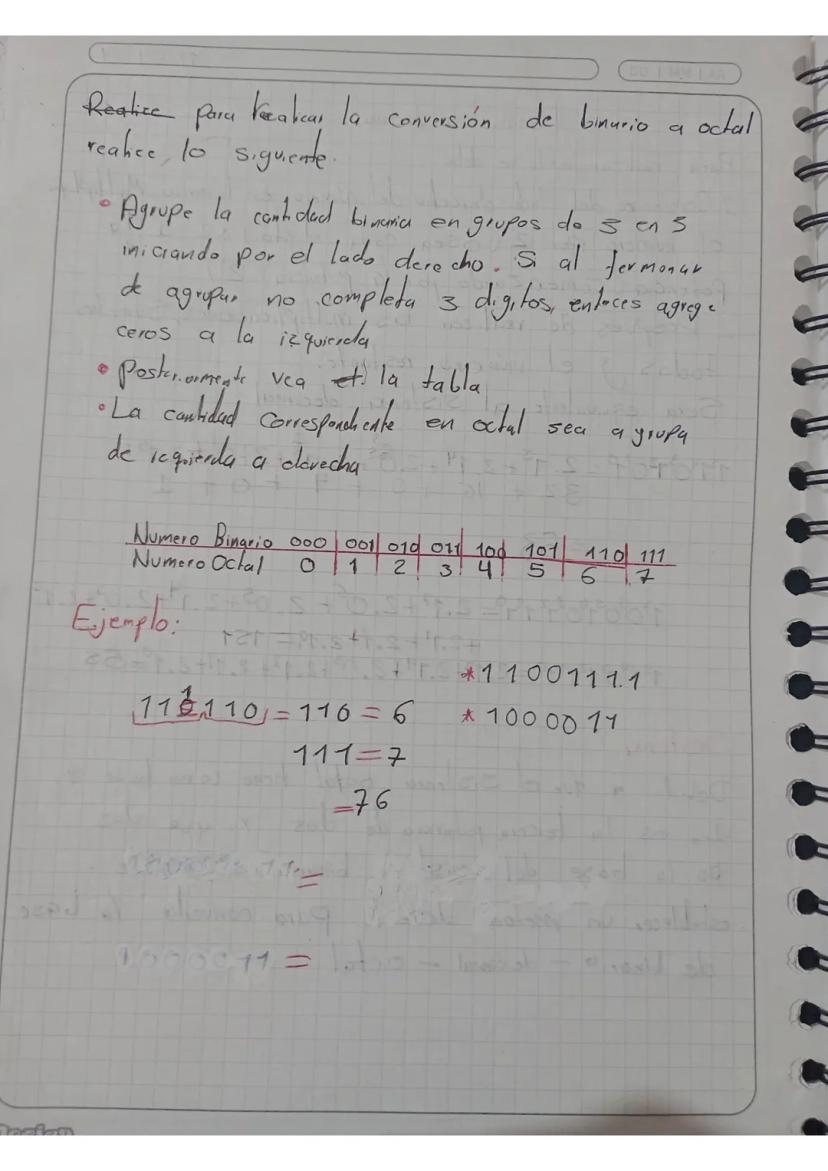 Realice para realizar la conversión de binario a octal
realice lo siguiente.
• Agrupe la cantidad binaria en grupos de 3 en 3
iniciando por el lado derecho. Si al termonar
de agrupar no completa 3 digitos, entoces agrege
ceros a la izquierda
• Posteriormente vea el la tabla
• La cantidad correspondiente en octal sea agrupa
de izquierda a derecha
Numero Binario 000 001 010 011 100 101 110 111
Numero Octal 0 1 2 3 4 5 6 7
Ejemplo:
* 11001111
111110 = 110 = 6 * 1000011
111 = 7
= 76
=
=